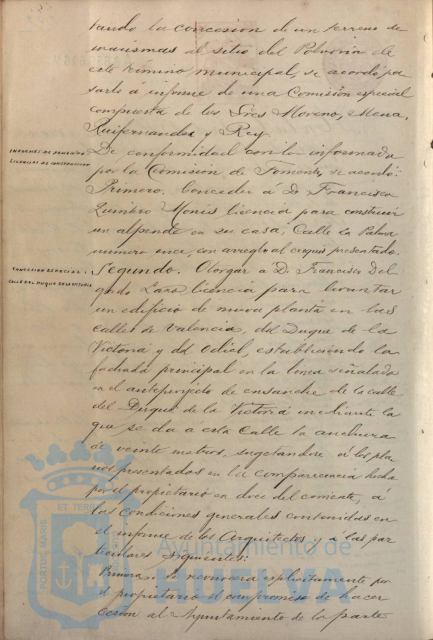 tando la concesion de un terreno de
marismas al sitio del Polvorin de
este término municipal, se acordó pa
sarlo á informe de una Comisión especial
compuesta de los Sres Moreno, Mena,
Ruifernandez y Rey.
INFORMES DE FOMENTO
LICENCIAS DE CONSTRUCCION
De conformidad con lo informado
por la Comision de Fomento, se acordó:
Primero. Conceder á D. Francisco
Quintero Monis licencia para construir
un alpende en su casa, Calle La Palma
numero once, con arreglo al croquis presentado.
CONCESION ESPECIAL
CALLE DEL DUQUE DE LA VICTORIA
Segundo. Otorgar á D. Francisco Del
gado Lazo licencia para levantar
un edificio de nueva planta en las
calles de Valencia, del Duque de la
Victoria y del Odiel, estableciendo la
fachada principal en la linea señalada
en el anteproyecto de ensanche de la calle
del Duque de la Victoria mediante la
que se da á esta Calle la anchura
de veinte metros, sugetandose á los pla
nos presentados en la comparecencia hecha
por el propietario en doce del corriente, á
las condiciones generales contenidas en
el informe de los Arquitectos y a las par
ticulares siguientes:
Primera. Se reconocerá esplicitamente por
el propietario el compromiso de hacer
cesion al Ayuntamiento de la parte
PORTUS MARIS
ET TERRE
Ayuntamiento de
HUELVA